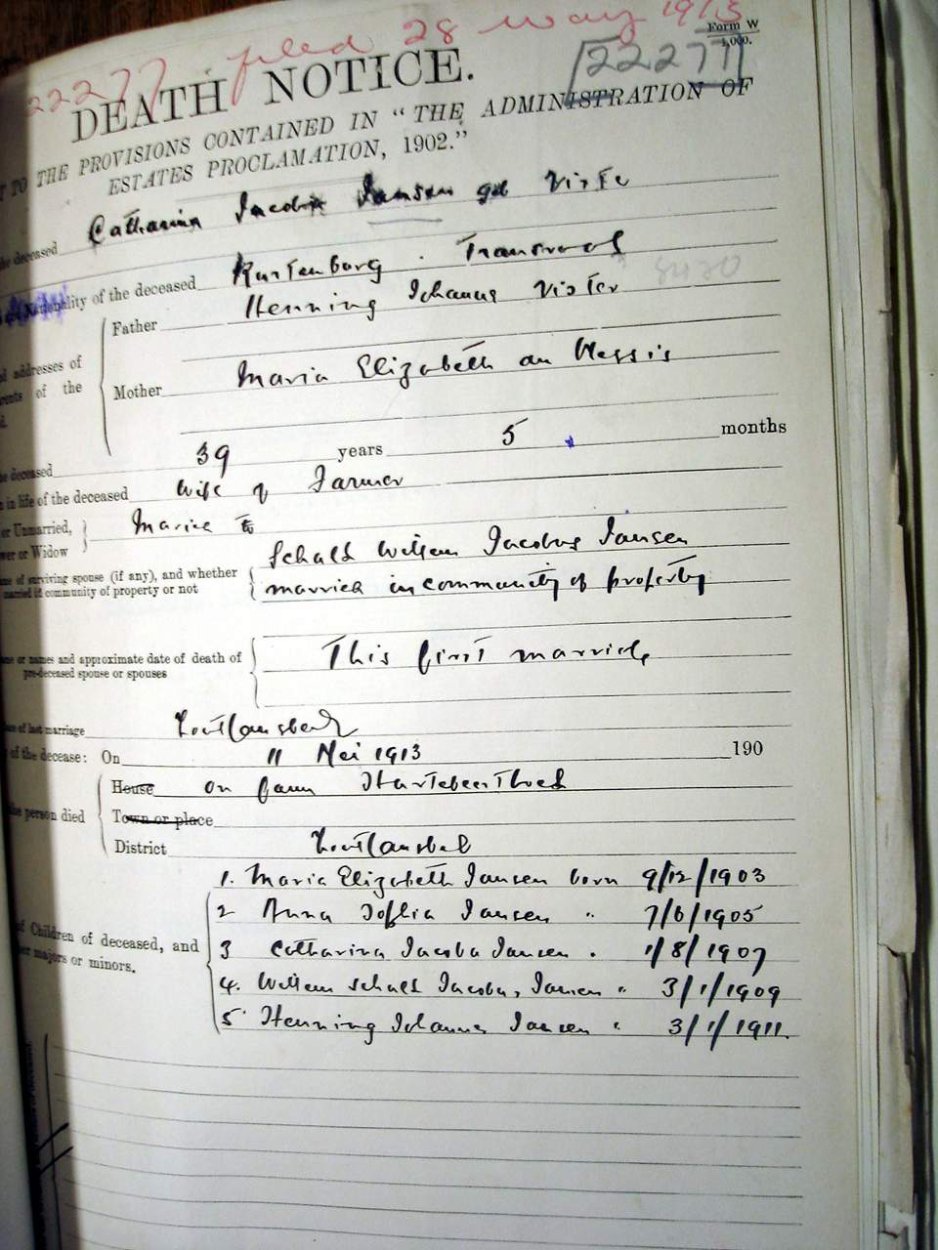 22277 filed 28 May 1913
Form W
22277
DEATH NOTICE.
TO THE PROVISIONS CONTAINED IN "THE ADMINISTRATION OF
ESTATES PROCLAMATION, 1902."
deceased Catharina Jacoba Jansen
ality of the deceased Rustenburg. Transvaal
8420
Father Henning Johannes Vister
addresses of
ents of the
Mother Maria Elizabeth du Plessis
deceased 39 years 5 months
in life of the deceased Wife of Farmer
or Unmarried,
wer or Widow
me of surviving spouse (if any), and whether
married in community of property or not
Schalk Willem Jacobus Jansen
married in community of property
me or names and approximate date of death of
pre-deceased spouse or spouses
This first
of last marriage
of the decease: On 11 Mei 1913 190
House on farm
person died
Town or place
District
1. Maria Elizabeth Jansen born 9/12/1903
2 Anna Soffia Jansen " 7/6/1905
of Children of deceased, and
er majors or minors.
3 Catharina Jacoba Jansen " 1/8/1907
4. Willem Schalk Jacobus Jansen " 3/1/1909
5 Henning Johannes Jansen " 3/1/1911.